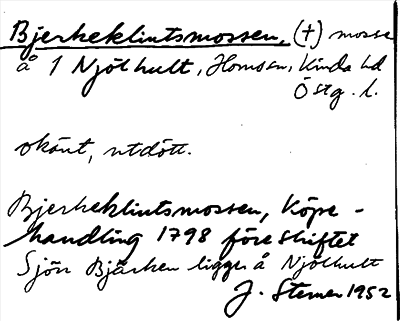 Bjerkeklintsmossen, (†) mosse
å 1 Njölhult, Homsen, Kinda hd
Östg. l.
okänt, utdött.
Bjerkeklintsmossen, Köpe-
handling 1798 före skiftet
Sjön Bjärken ligger å Njölhult
J. Sterner 1952